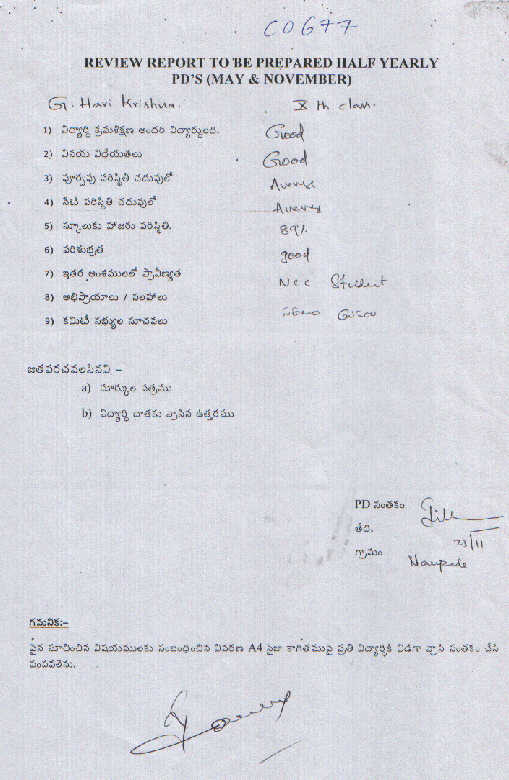 C0677
REVIEW REPORT TO BE PREPARED HALF YEARLY
PD'S (MAY & NOVEMBER)
G. Hari Krishna. X th class.
1) విద్యార్థి క్రమశిక్షణ అందరి విద్యార్థులది. Good
2) వినయ విధేయతలు Good
3) పూర్వపు పరిస్థితి చదువులో Average
4) నేటి పరిస్థితి చదువులో Average
5) స్కూలుకు హాజరు పరిస్థితి. 89%
6) పరిశుభ్రత good
7) ఇతర అంశములలో ప్రావీణ్యత NCC Student
8) అభిప్రాయాలు / సలహాలు
9) కమిటీ సభ్యుల సూచనలు
జతపరచవలసినవి –
a) మార్కుల పత్రము
b) విద్యార్థి చేతను వ్రాసిన ఉత్తరము
PD సంతకం
తేది. 23/11
గ్రామం Naupada
గమనిక:–
పైన సూచించిన విషయములకు సంబంధించిన వివరణ A4 సైజు కాగితముపై ప్రతి విద్యార్థికి విడిగా వ్రాసి సంతకం చేసి
పంపవలెను.